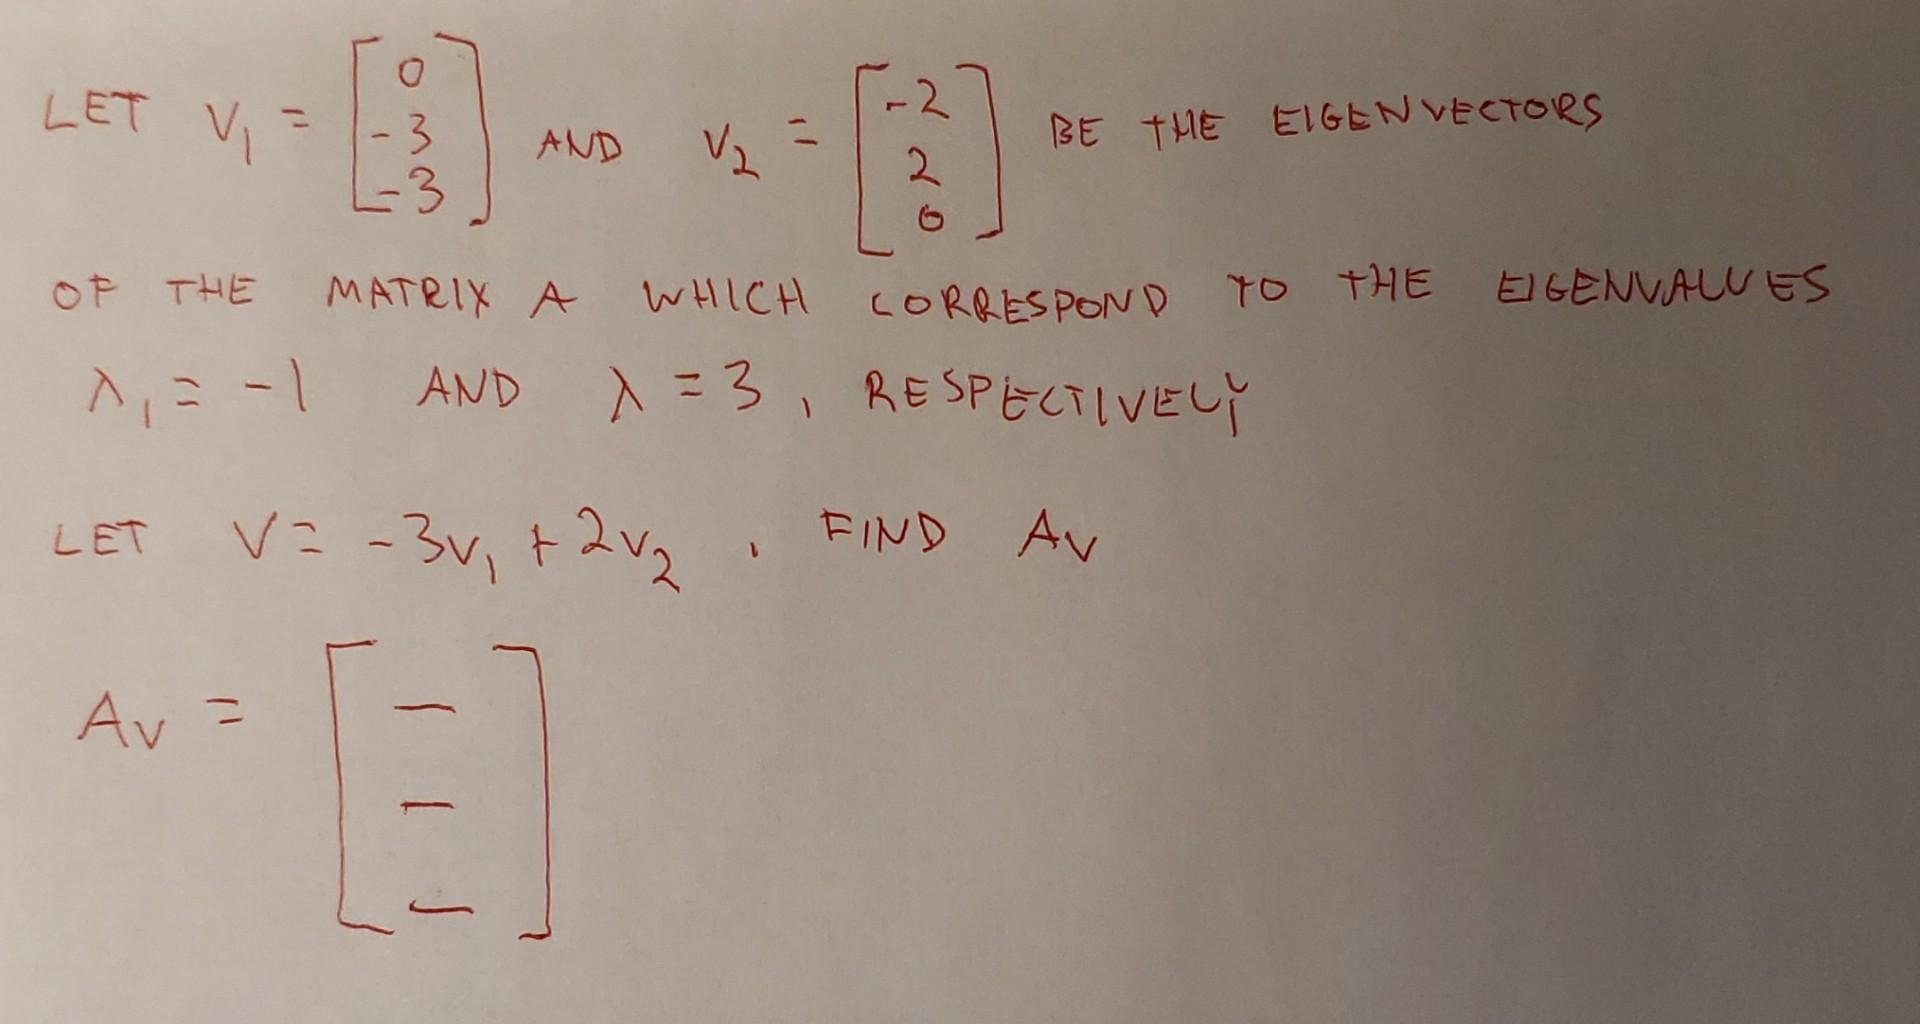 LET V₁ = [0 -3 -3] AND V₂ = [-2 2 0] BE THE EIGENVECTORS
OF THE MATRIX A WHICH CORRESPOND TO THE EIGENVALUES
λ₁ = -1 AND λ = 3, RESPECTIVELY
LET V = -3V₁ + 2V₂. FIND AV
AV = [_ _ _]